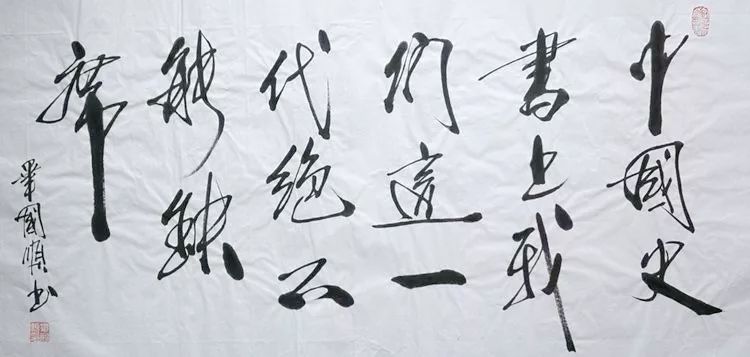 中國史
書上我
们這一
代绝不
能缺
席
畢國順书